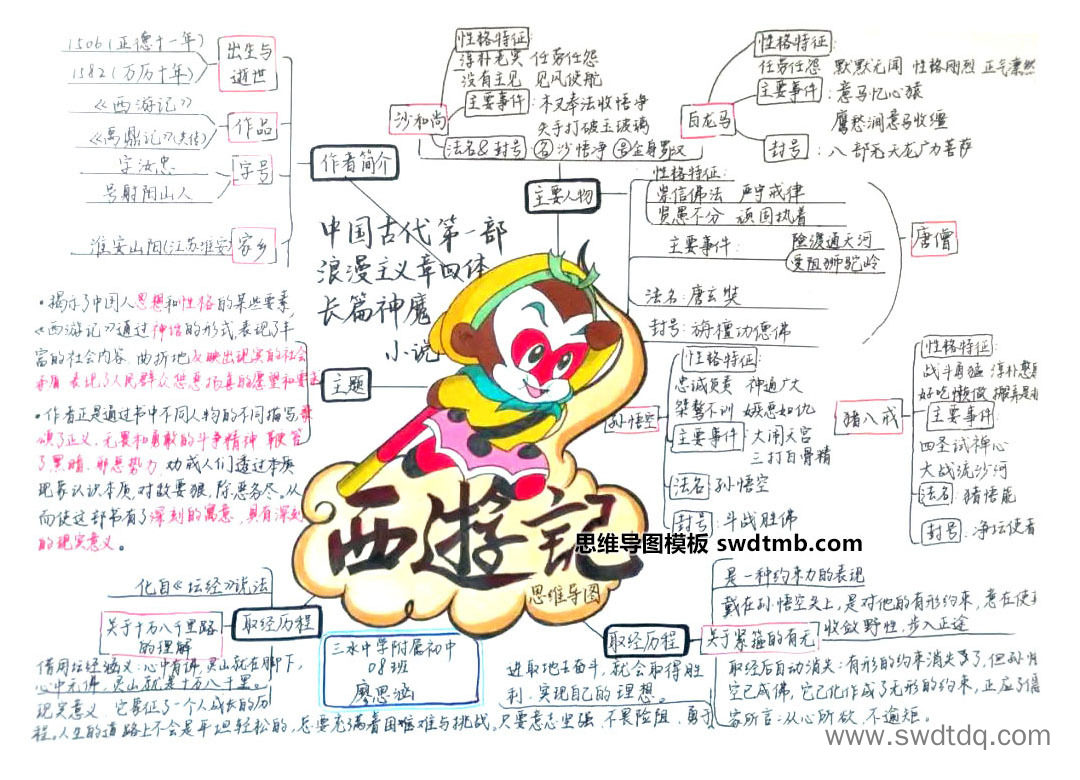 1506(正德十一年)
1582(万历十年)
出生与
逝世
《西游记》
《禹鼎记》(失传)
作品
字汝忠
号射阳山人
字号
淮安山阳(江苏淮安)
家乡
作者简介
中国古代第一部
浪漫主义章回体
长篇神魔
小说
主题
•揭示了中国人思想和性格的某些要素,
《西游记》通过神话的形式,表现了丰
富的社会内容,曲折地反映出现实的社会
矛盾,表现了人民群众惩恶扬善的愿望和要求
•作者正是通过书中不同人物的不同描写歌
颂了正义、无畏和勇敢的斗争精神,鞭笞
了黑暗、邪恶势力,劝戒人们透过本质
现象认识本质,对敌要狠,除恶务尽。从
而使这部书有了深刻的寓意,具有深刻
的现实意义。
沙和尚
性格特征:
淳朴老实 任劳任怨
没有主见 见风使舵
主要事件:木叉奉法收悟净
失手打破玉玻璃
法名&封号 名 沙悟净 号 金身罗汉
白龙马
性格特征:
任劳任怨 默默无闻 性格刚烈 正气凛然
主要事件:意马忆心猿
鹰愁涧意马收缰
封号:八部天龙广力菩萨
主要人物
性格特征:
崇信佛法 严守戒律
贤愚不分 顽固执着
主要事件:
险渡通天河
受阻狮驼岭
法名:唐玄奘
封号:旃檀功德佛
唐僧
孙悟空
性格特征:
忠诚负责 神通广大
桀骜不训 嫉恶如仇
主要事件:大闹天宫
三打白骨精
法名:孙悟空
封号:斗战胜佛
猪八戒
性格特征:
战斗勇猛 淳朴憨
好吃懒做 搬弄是
主要事件:
四圣试禅心
大战流沙河
法名:猪悟能
封号:净坛使者
西游记
思维导图
思维导图模板 swdtmb.com
化自《坛经》说法
取经历程
关于十万八千里路
的理解
借用坛经涵义:心中有佛,灵山就在脚下,
心中无佛,灵山就是十万八千里。
现实意义:它象征了一个人成长的历
程。人生的道路上不会是平坦轻松的,总要充满着困难与挑战。只要意志坚强,不畏险阻,勇于
进取地去奋斗,就会取得胜
利,实现自己的理想。
三水中学附属初中
08班
廖思涵
取经历程
关于紧箍的有无
是一种约束力的表现
戴在孙悟空头上,是对他的有形约束,意在使
收敛野性,步入正途
取经后自动消失:有形的约束消失了,但孙悟
空已成佛,它已化作成了无形的约束,正应了儒
家所言:从心所欲,不逾矩。
www.swdtdq.com